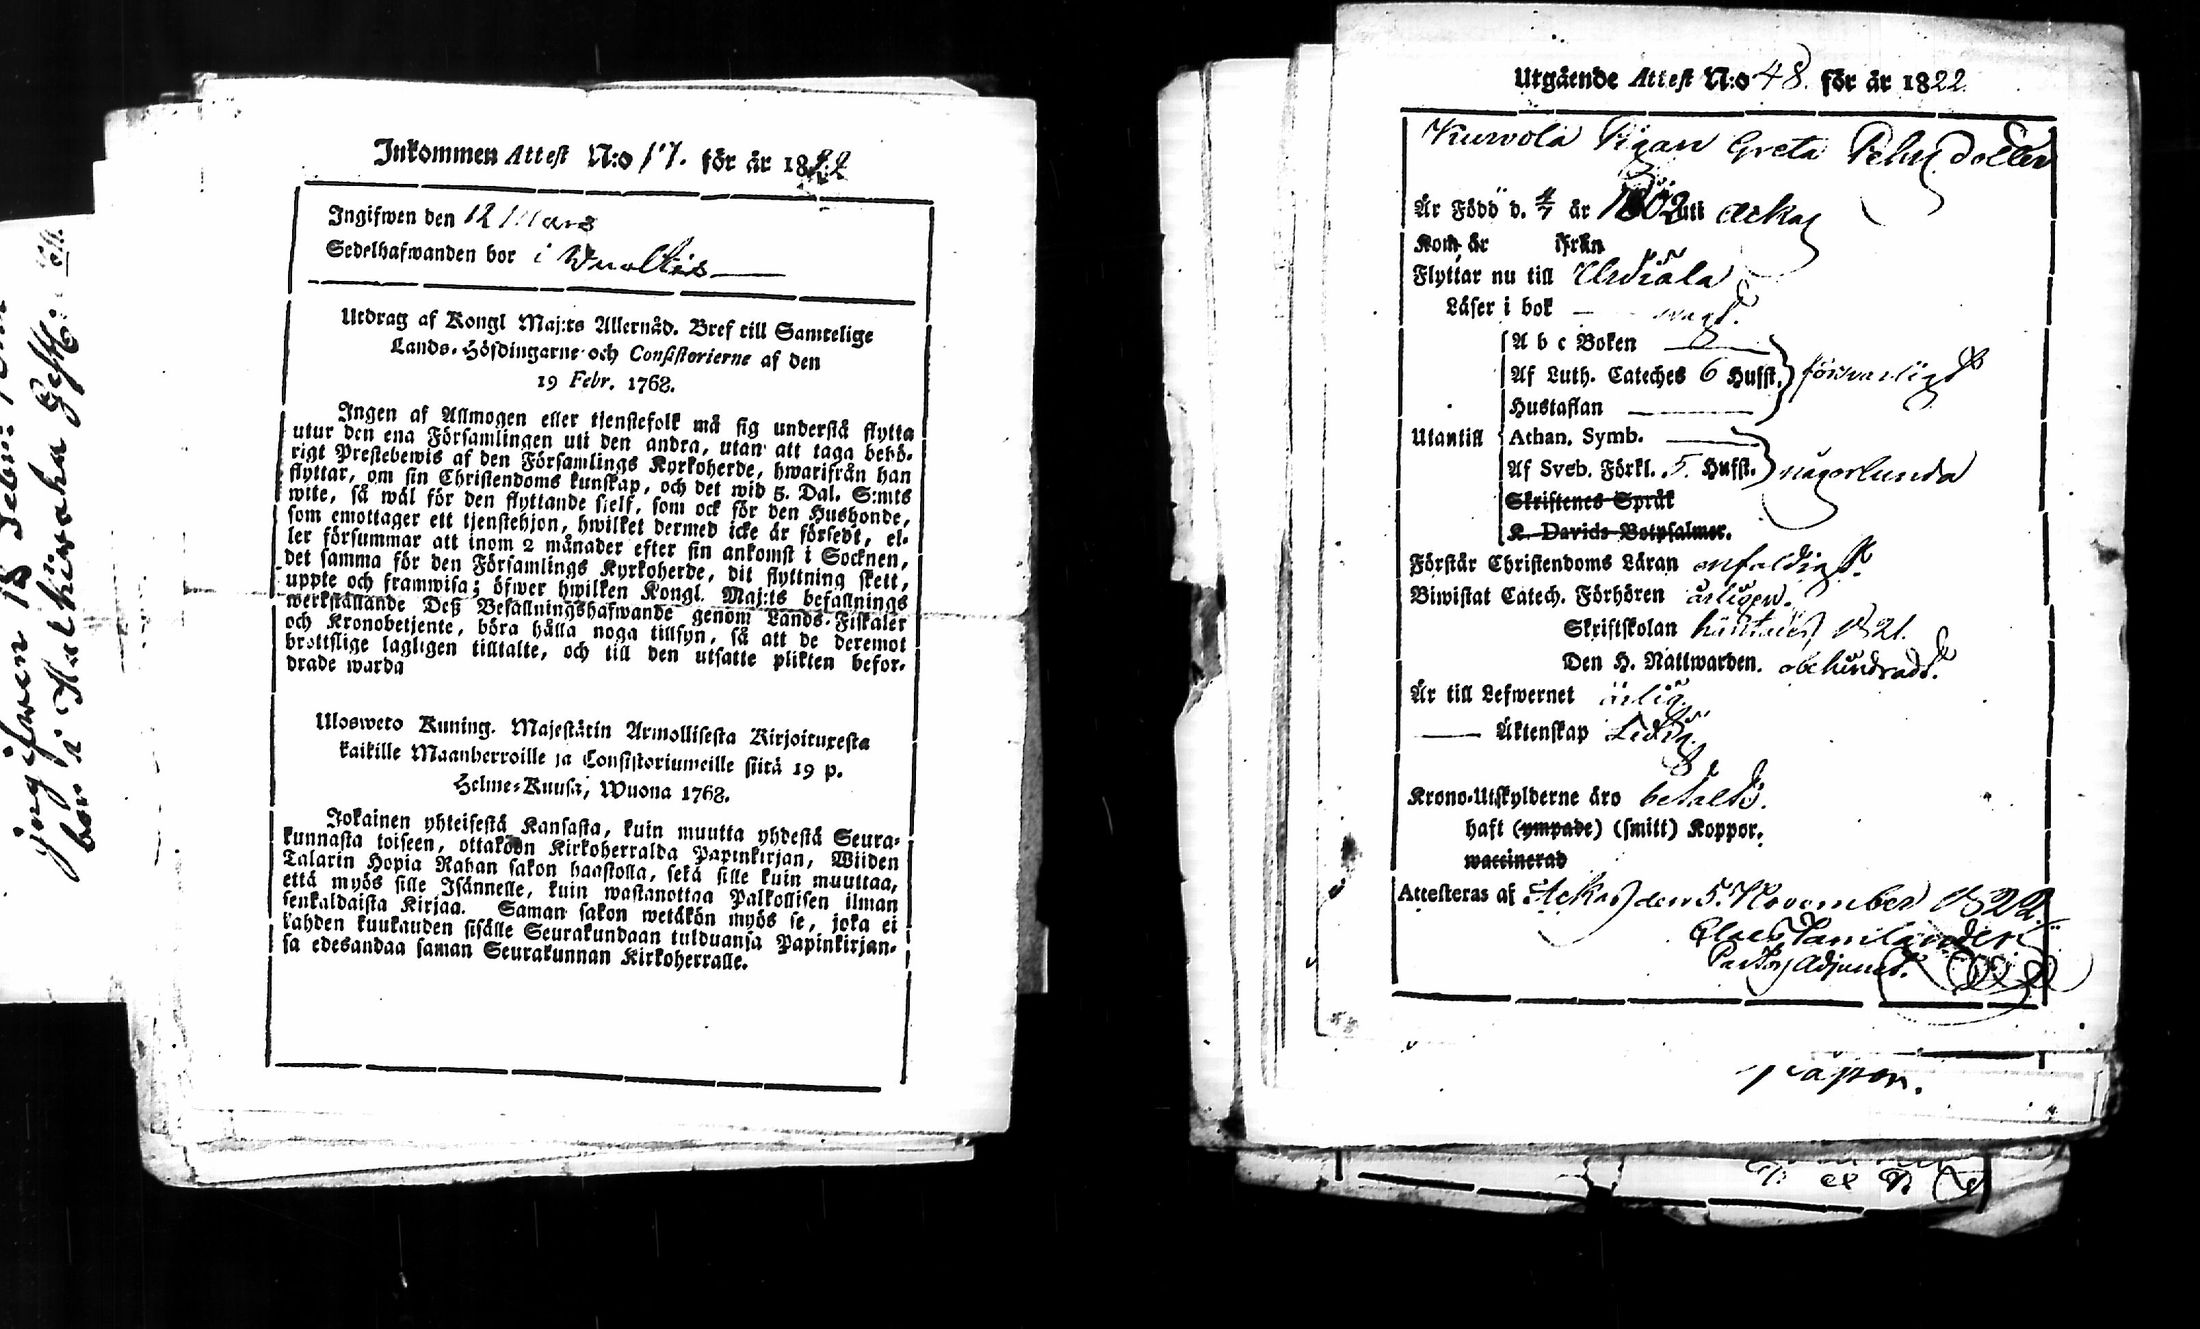 Ingifwen 18 Febr
bor i Halkiwaha
Inkommen Attest N:o 17. för år 1822
Ingifwen den 12 Mars
Sedelhafwanden bor i Wuoltis
Utdrag af Kongl Maj:ts Allernåd. Bref till Samtelige
Lands-Höfdingarne och Consistorierne af den
19 Febr. 1768.
Ingen af Allmogen eller tjenstefolk må sig understå flytta
utur den ena Församlingen uti den andra, utan att taga behö-
rigt Prestebewis af den Församlings Kyrkoherde, hwarifrån han
flyttar, om sin Christendoms kunskap, och det wid 5. Dal. S:mts
wite, så wäl för den flyttande sielf, som ock för den Husbonde,
som emottager ett tjenstehjon, hwilket dermed icke är försedt, el-
ler försummar att inom 2 månader efter sin ankomst i Socknen,
det samma för den Församlings Kyrkoherde, dit flyttning skett,
uppte och framwisa; öfwer hwilken Kongl. Maj:ts befallnings
werkställande Deß Befallningshafwande genom Lands-Fiskaler
och Kronobetjente, böra hålla noga tillsyn, så att de deremot
brottslige lagligen tilltalte, och till den utsatte plikten befor-
drade warda
Ulosweto Kuning. Majestätin Armollisesta Kirjoituxesta
kaikille Maanherroille ja Consistoriumeille siitä 19 p.
Helme-Kuusa, Wuona 1768.
Jokainen yhteisestä Kansasta, kuin muutta yhdestä Seura-
kunnasta toiseen, ottakoon Kirkoherralda Papinkirjan, Wiiden
Talarin Hopia Rahan sakon haastolla, sekä sille kuin muuttaa,
että myös sille Isännelle, kuin wastanottaa Palkollisen ilman
senkaldaista Kirjaa. Saman sakon wetäkön myös se, joka ei
kahden kuukauden sisälle Seurakundaan tulduansa Papinkirjan-
sa edesandaa saman Seurakunnan Kirkoherralle.
Utgående Attest N:o 48. för år 1822.
Kurvola Pigan Greta Pehrsdotter
Är Född d. 4/7 år 1802 uti Ackas
Kom år ifrån
Flyttar nu till Urdiala
Läser i bok — svagt.
A b c Boken —
Af Luth. Cateches 6 Hufst. försvarligt
Hustaflan —
Utantill Athan. Symb. —
Af Sveb. Förkl. 5. Hufst. någorlunda
Skriftenes Språk
K. Davids Botpsalmer.
Förstår Christendoms Läran enfaldigt.
Biwistat Catech. Förhören årligen.
Skriftskolan 1821.
Den H. Nattwarden. obehindradt.
Är till Lefwernet ärlig
— Äktenskap Ledig
Krono-Utskylderne äro betalte.
haft (ympade) (smitt) Koppor.
waccinerad
Attesteras af Ackas den 5. November 1822.
Claes
Pastors Adjunct.